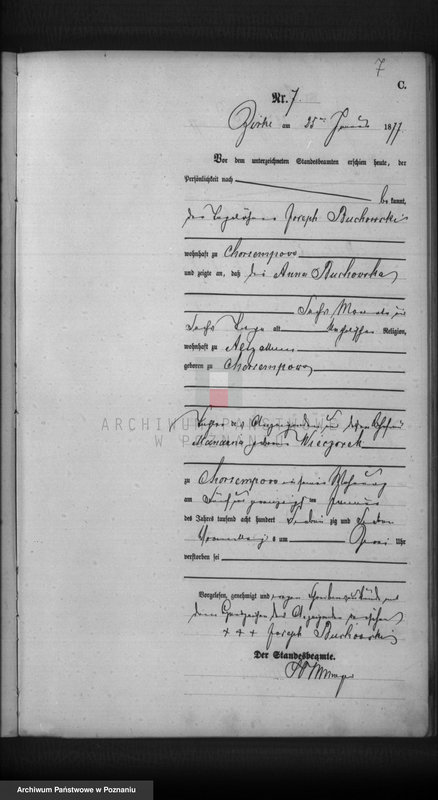 7
C.
Nr. 7.
Zirke am 25ten Januar 1877
Vor dem unterzeichneten Standesbeamten erschien heute, der
Persönlichkeit nach
be kannt,
der Tagelöhner Joseph Buchowski
wohnhaft zu Chorzempowo
und zeigte an, daß die Anna Buchowska
Sechs Monate und
Sechs Tage alt Religion,
wohnhaft zu
geboren zu Chorzempowo
Tochter des Anzeigenden und dessen Ehefrau
Marianna geborene Wieczorek
ARCHIWUM PAŃSTWOWE
W POZNANIU
zu Chorzempowo in seiner Wohnung
am Fünfundzwanzigsten Januar
des Jahrs tausend acht hundert Siebenzig und Sieben
Vormittags um Uhr
verstorben sei
Vorgelesen, genehmigt und wegen Schreibensunkunde mit
dem Handzeichen des Anzeigenden versehen
+ + + Joseph Buchowski
Der Standesbeamte.
Archiwum Państwowe w Poznaniu